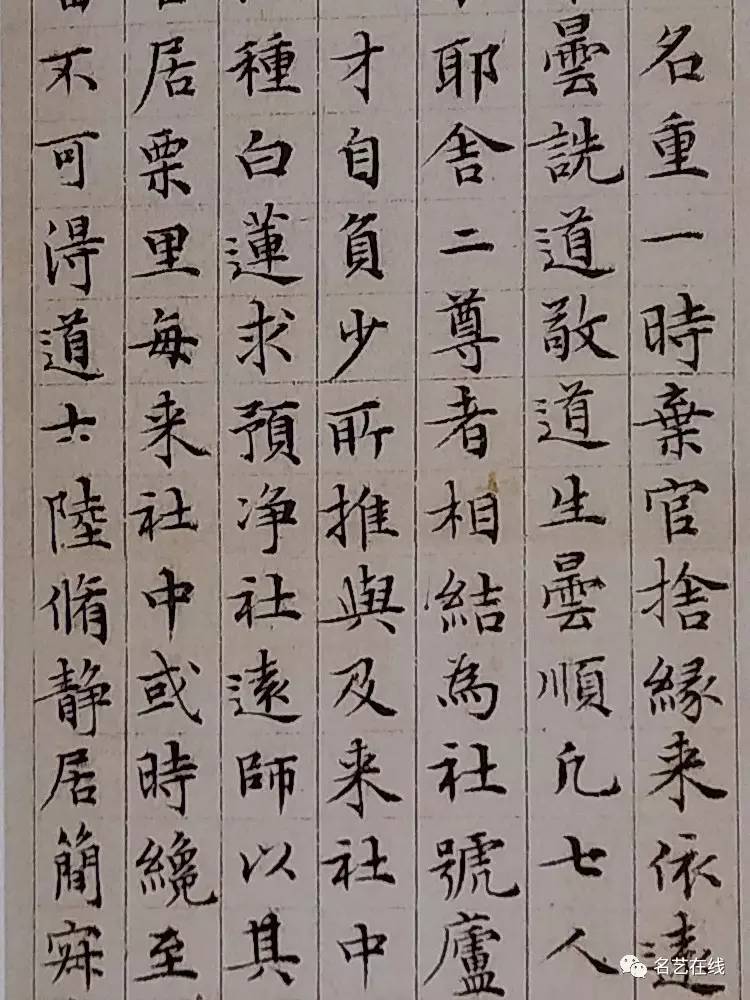 名重一時棄官捨緣来依遠
曇詵道敬道生曇順凡七人
耶舍二尊者相結為社號廬
才自負少所推與及来社中
種白蓮求預净社遠師以其
居栗里每来社中或時纔至
不可淂道士陸脩静居簡寂
名艺在线